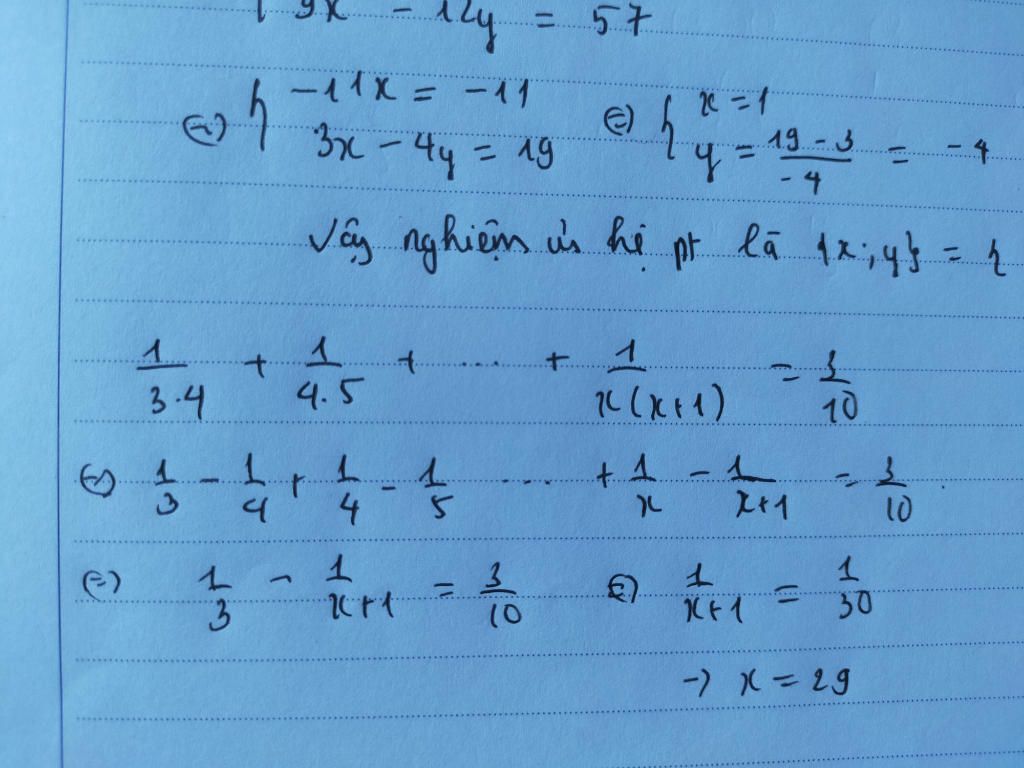 { 9x - 12y = 57
(=) { -11x = -11 (=) { x = 1
3x - 4y = 19 y = \frac{19 - 3}{-4} = -4
Vậy nghiệm của hệ pt là {x; y} = {
\frac{1}{3.4} + \frac{1}{4.5} + .... + \frac{1}{x(x+1)} = \frac{3}{10}
(=) \frac{1}{3} - \frac{1}{4} + \frac{1}{4} - \frac{1}{5} ... + \frac{1}{x} - \frac{1}{x+1} = \frac{3}{10}.
(=) \frac{1}{3} - \frac{1}{x+1} = \frac{3}{10} (=) \frac{1}{x+1} = \frac{1}{30}
-> x = 29